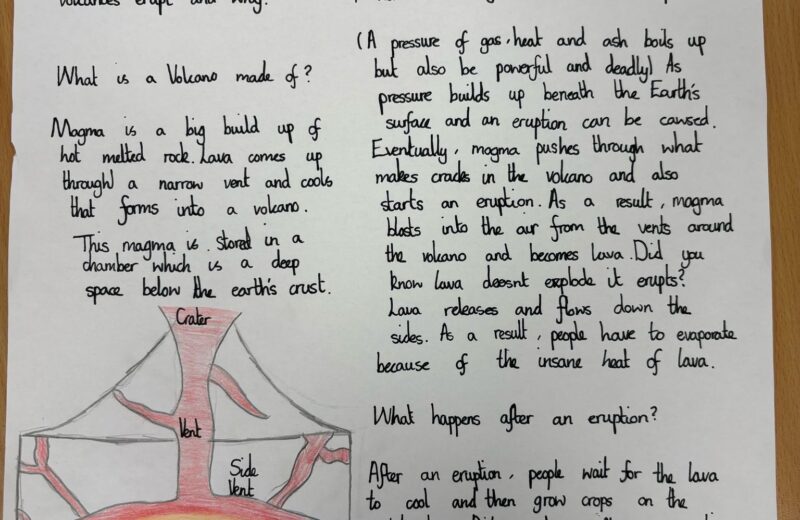 volcanoes erupt and why?
What is a Volcano made of?
Magma is a big build up of
hot melted rock. Lava comes up
through) a narrow vent and cools
that forms into a volcano.
This magma is stored in a
chamber which is a deep
space below the earth's crust.
Crater
Vent
Side
Vent
(A pressure of gas, heat and ash boils up
but also be powerful and deadly) As
pressure builds up beneath the Earth's
surface and an eruption can be cawsed.
Eventually, magma pushes through what
makes cracks in the volcano and also
starts an eruption. As a result, magma
blasts into the air from the vents around
the volcano and becomes lava. Did you
know lava doesnt explode it erupts?
Lava releases and flows down the
sides. As a result, people have to evaporate
because of the insane heat of lava.
What happens after an eruption?
After an eruption, people wait for the lava
to cool and then grow crops on the